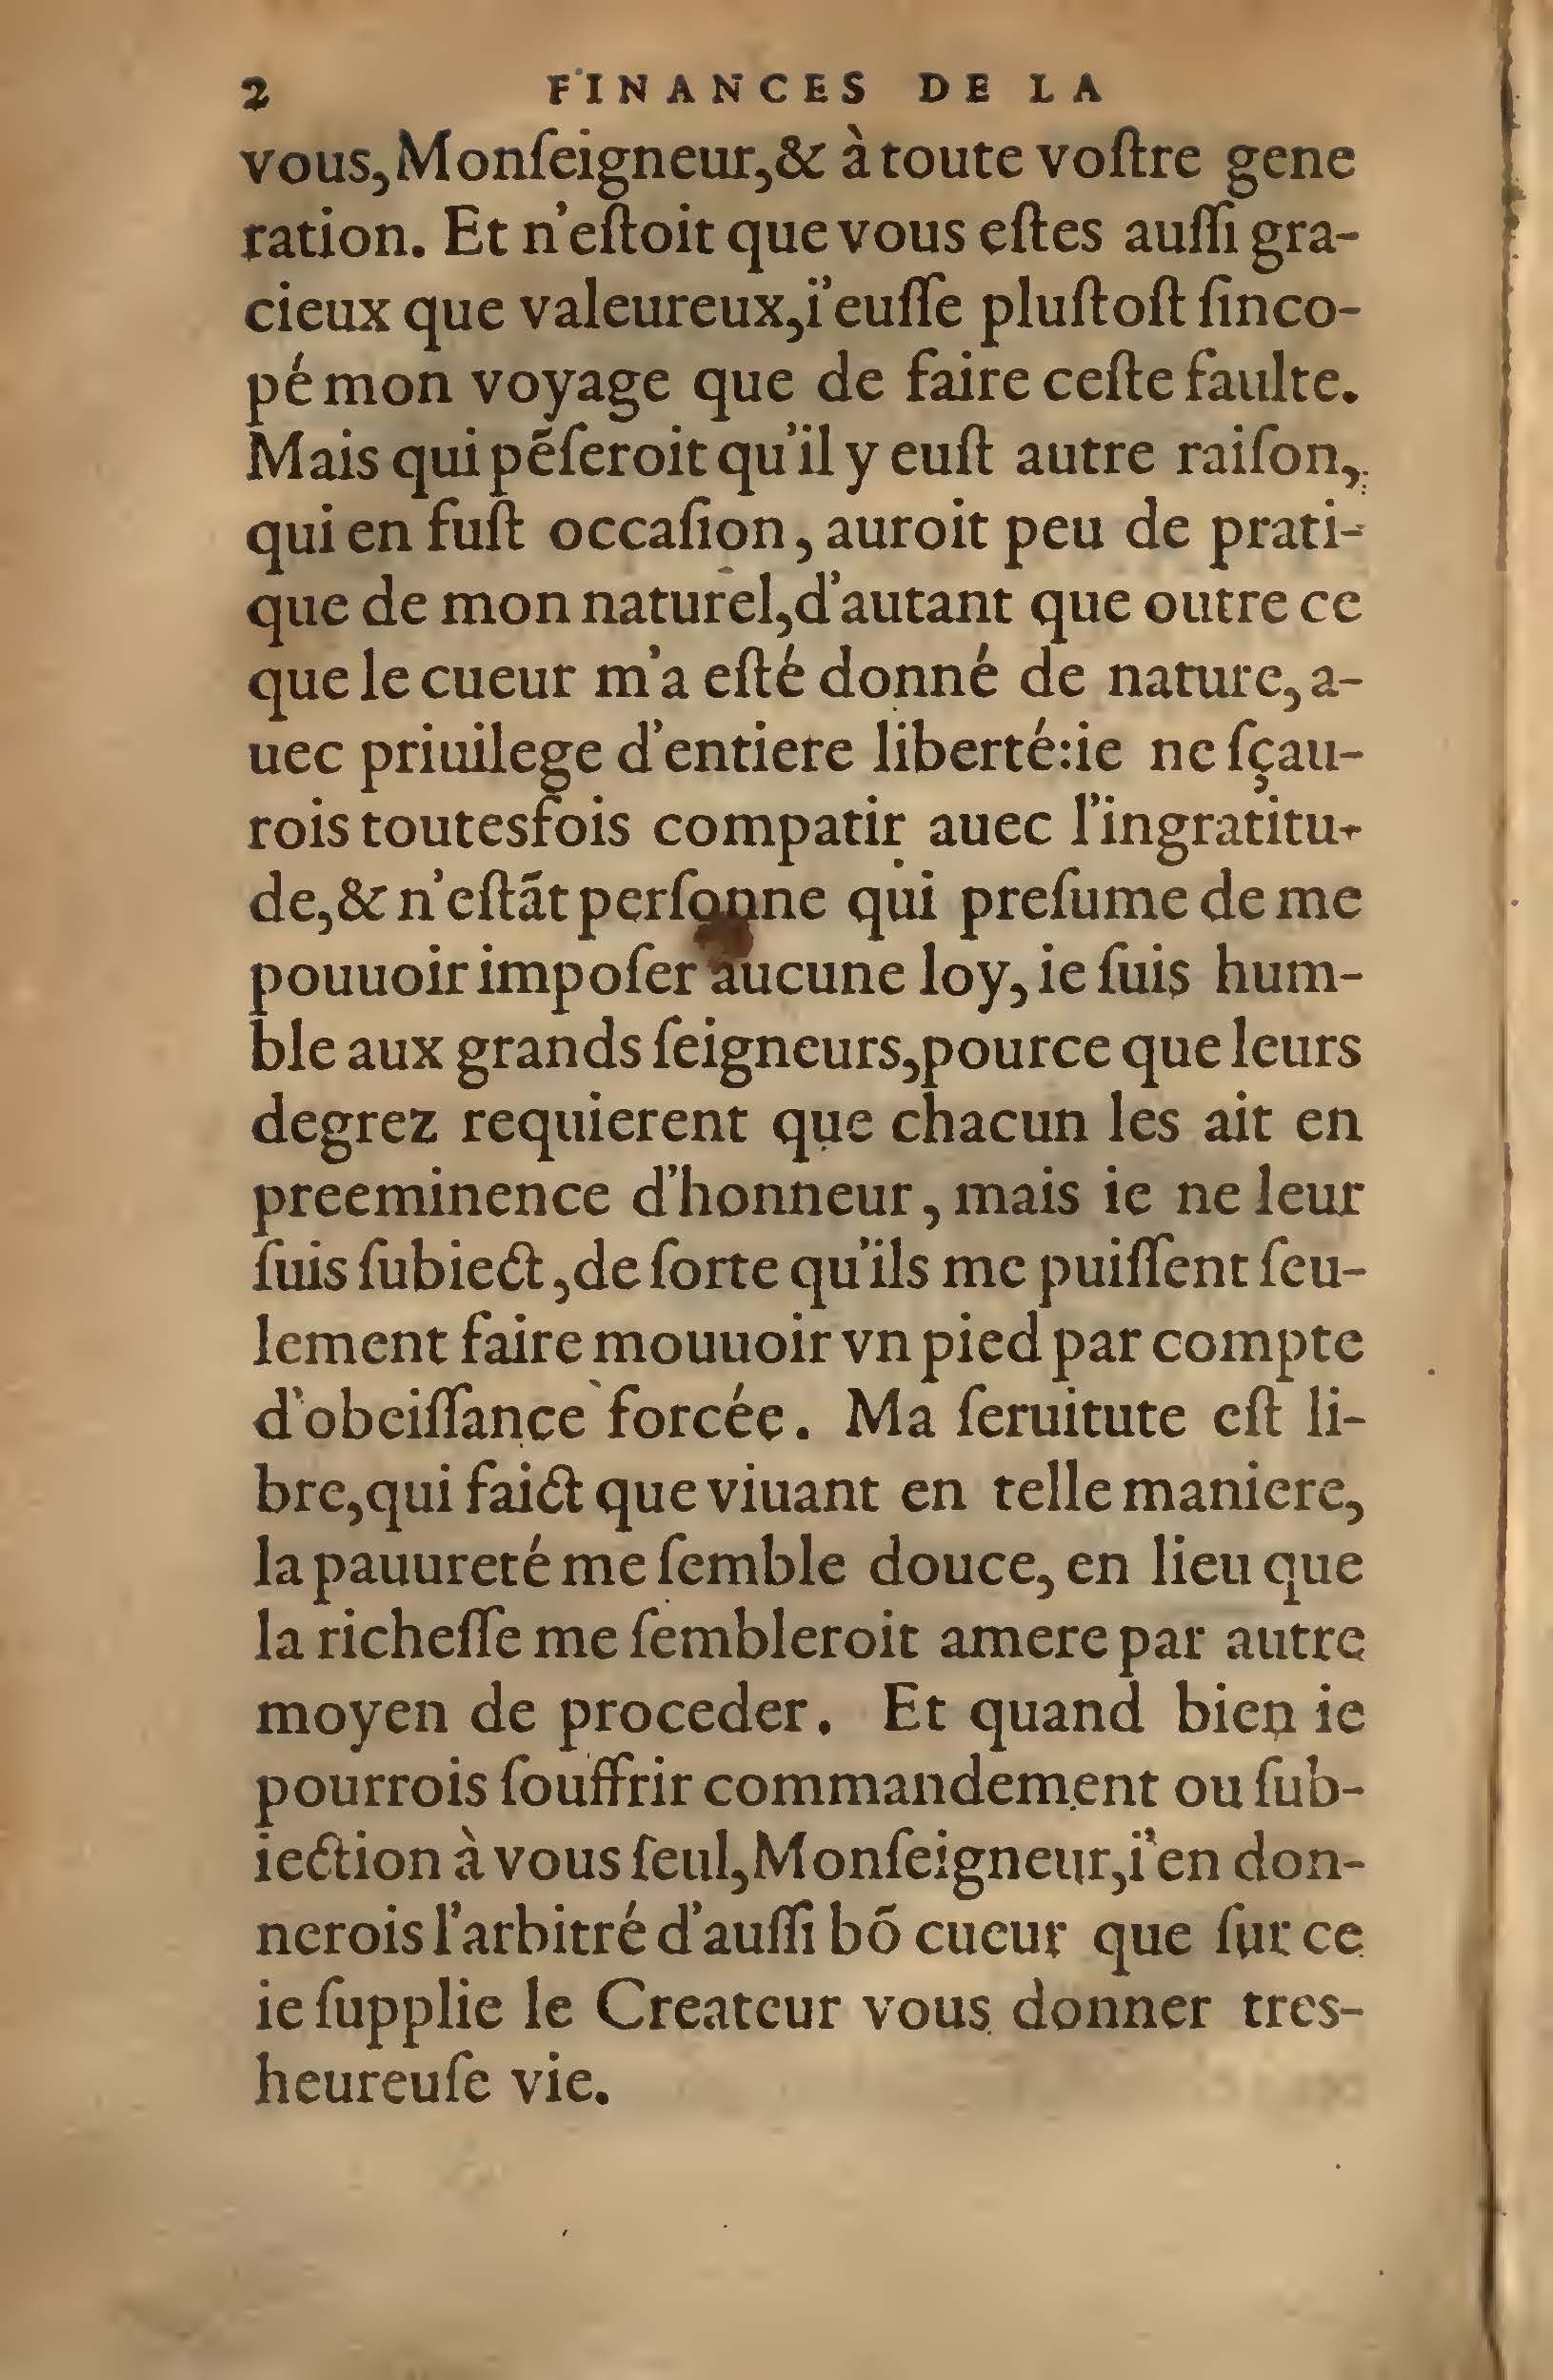 2 FINANCES DE LA
vous, Monſeigneur, & à toute voſtre gene
ration. Et n'eſtoit que vous eſtes auſſi gra-
cieux que valeureux, i'euſſe pluſtoſt ſinco-
pé mon voyage que de faire ceſte faulte.
Mais qui pēſeroit qu'il y euſt autre raiſon,
qui en fuſt occaſion, auroit peu de prati-
que de mon naturel, d'autant que outre ce
que le cueur m'a eſté donné de nature, a-
uec priuilege d'entiere liberté: ie ne ſçau-
rois toutesfois compatir auec l'ingratitu-
de, & n'eſtāt perſonne qui preſume de me
pouuoir impoſer aucune loy, ie ſuis hum-
ble aux grands ſeigneurs, pource que leurs
degrez requierent que chacun les ait en
preeminence d'honneur, mais ie ne leur
ſuis ſubiect, de ſorte qu'ils me puiſſent ſeu-
lement faire mouuoir vn pied par compte
d'obeiſſance forcée. Ma ſeruitute eſt li-
bre, qui faict que viuant en telle maniere,
la pauureté me ſemble douce, en lieu que
la richeſſe me ſembleroit amere par autre
moyen de proceder. Et quand bien ie
pourrois ſouffrir commandement ou ſub-
iection à vous ſeul, Monſeigneur, i'en don-
nerois l'arbitré d'auſſi bō cueur que ſur ce
ie ſupplie le Createur vous donner tres-
heureuſe vie.